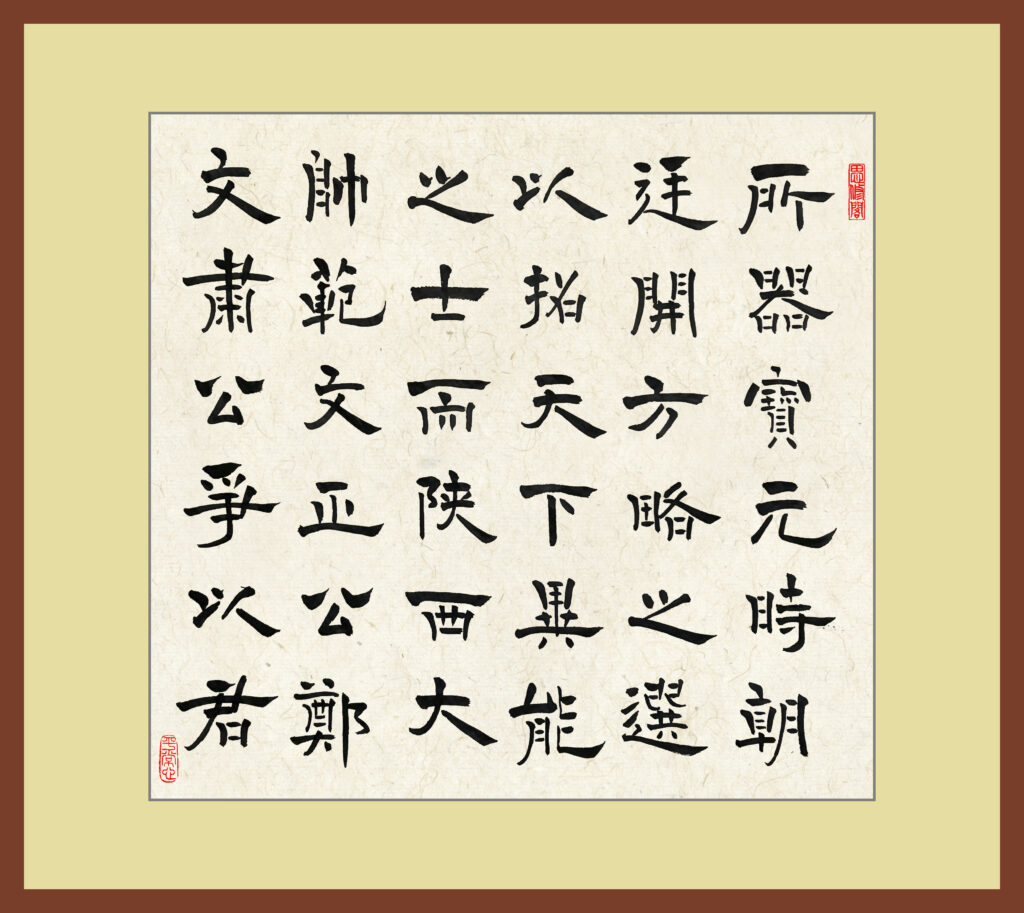 思修閣
所器寶元時朝
廷開方略之選
以招天下異能
之士而陝西大
帥範文正公鄭
文肅公爭以君
平常心